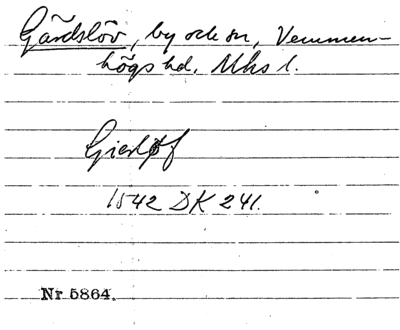 Gärdslöv, by och sn, Vemmen-
högs hd. Mhs l.
Gierløf
1542 DK 241.
Nr 5864.